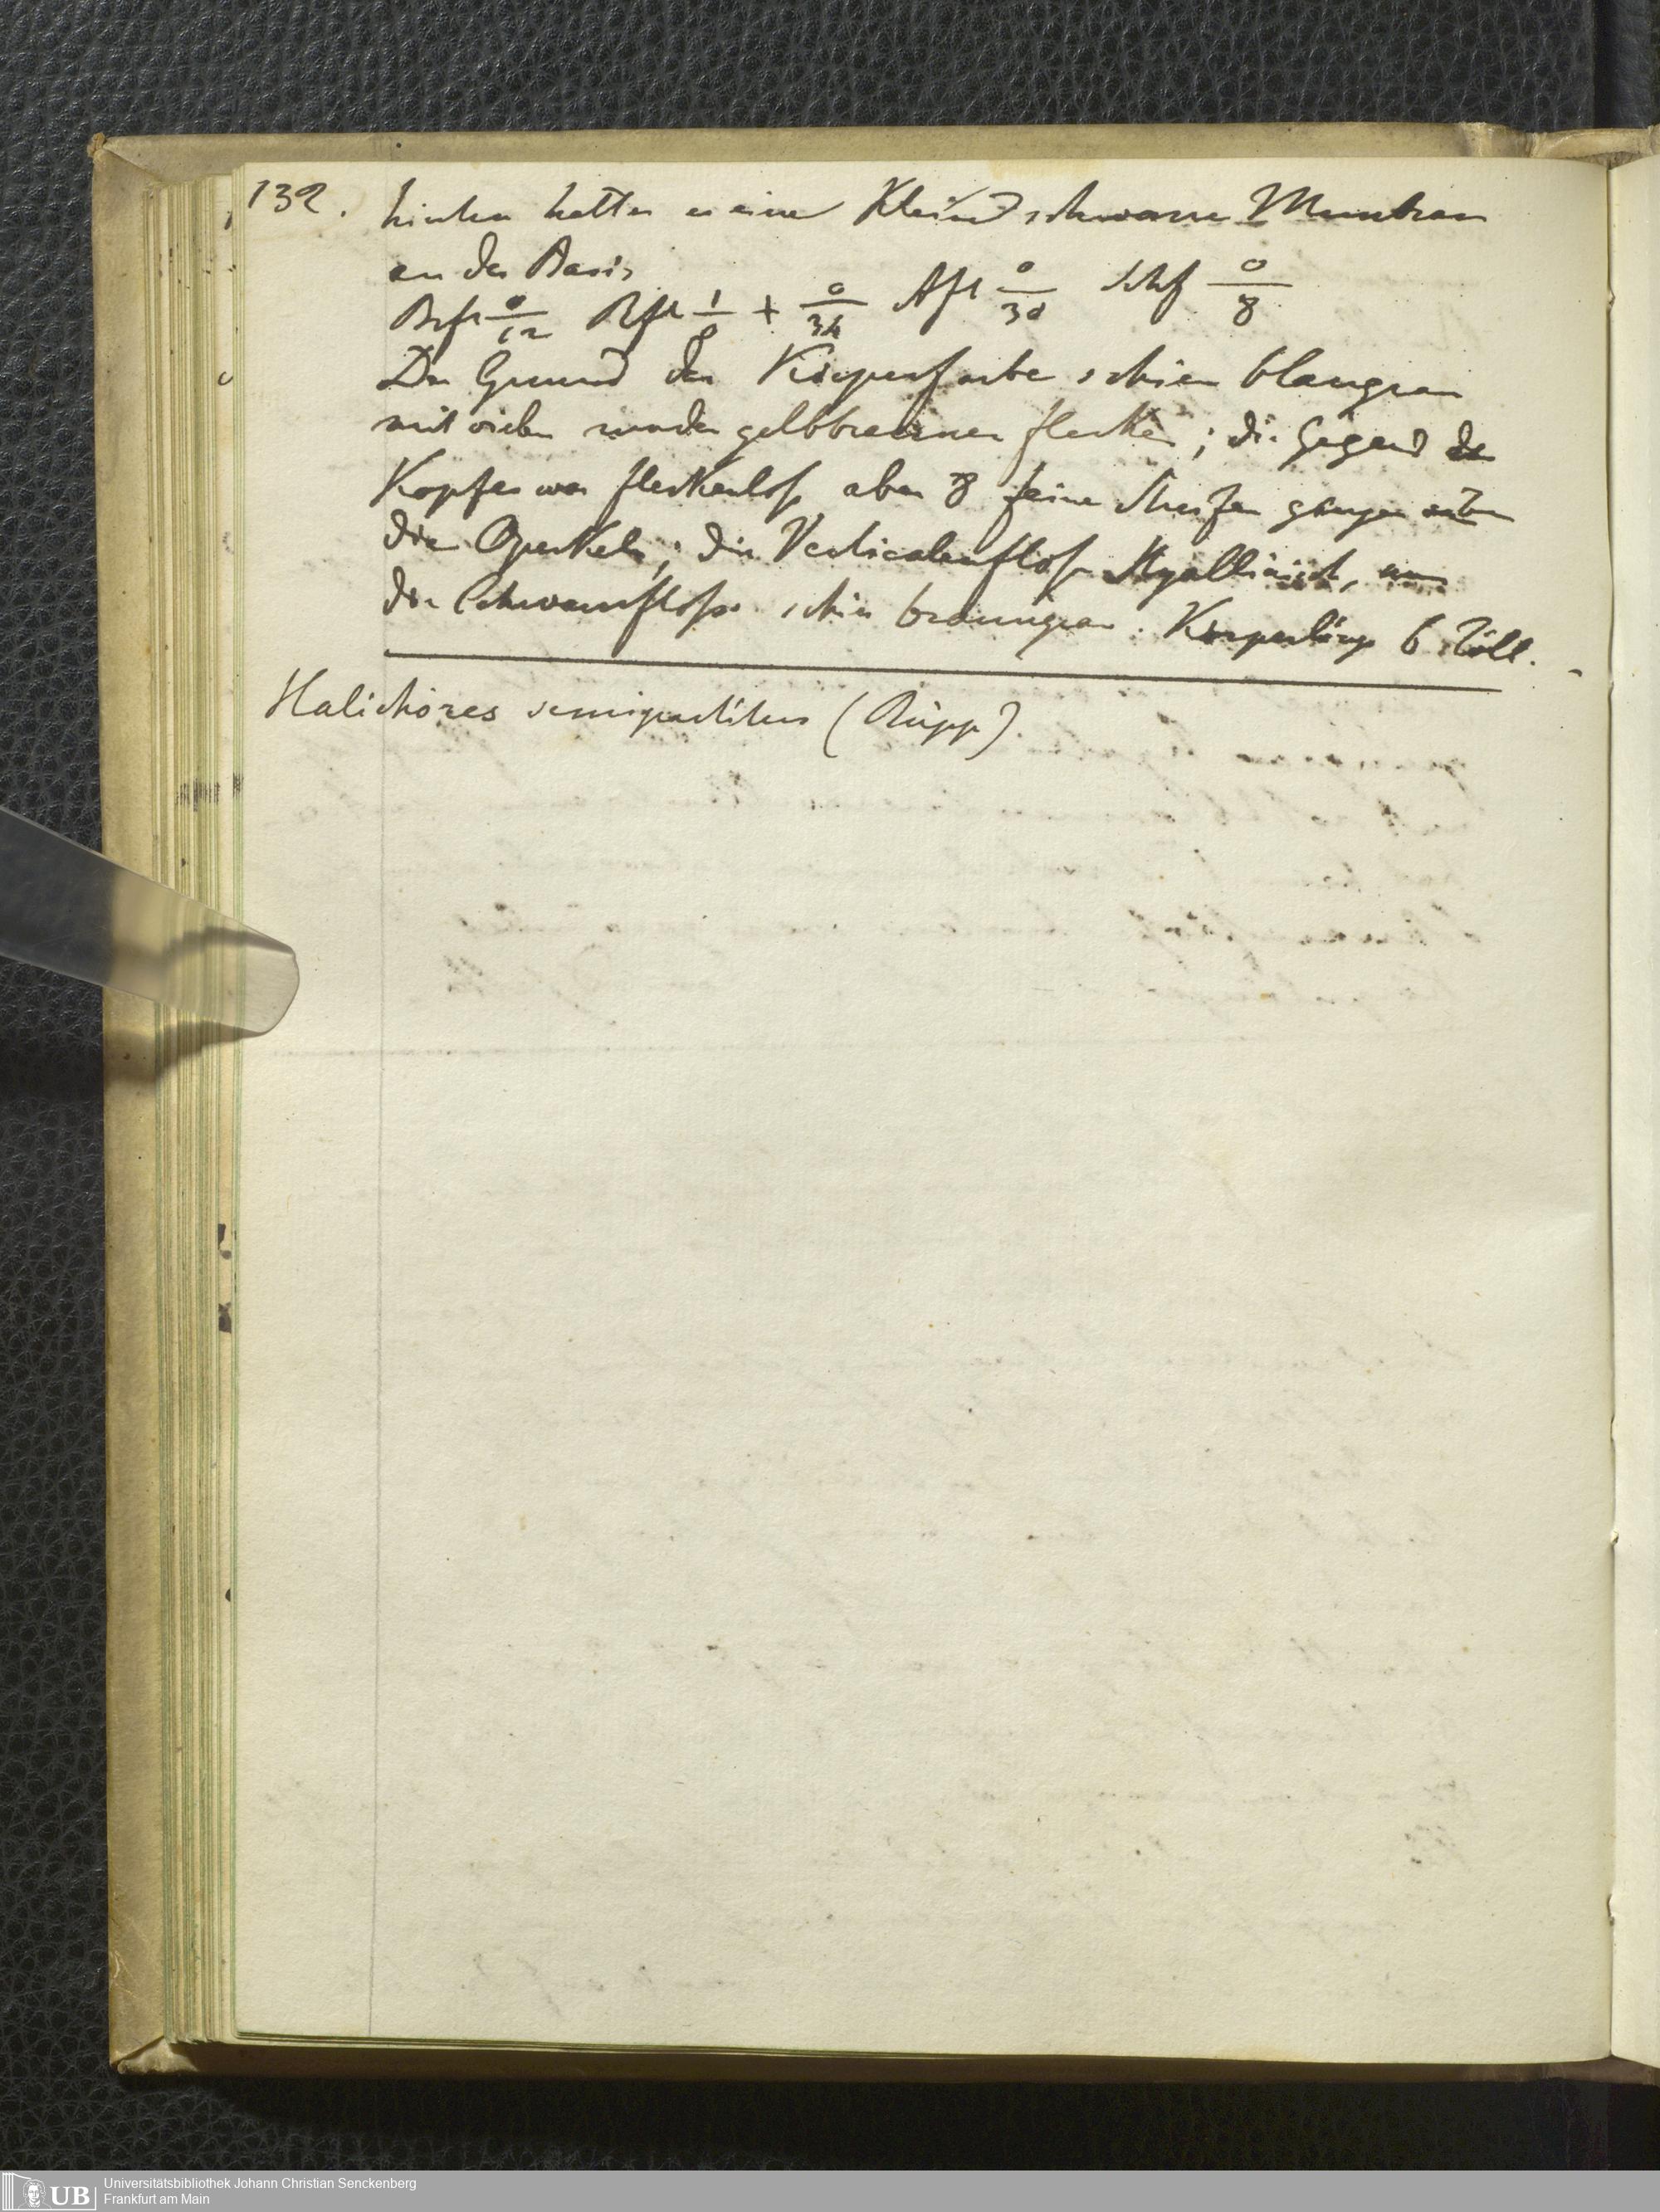 132.
hinten hatten es eine Kleine schwarze Membran
an der Basis
Brfl 0/12 Rfl 1/0 + 0/34 Afl 0/30 Schf 0/8
Der Grund der Körperfarbe schien blaugrau
mit vielen runden gelbbraunen flecken; die Gegend des
Kopfes war fleckenlos, aber 8 feine Streifen giengen unter
die Operkeln; die Verticalenflosse Hyallinisch, nur
die Schwanzflosse schien braungrau. Körperlänge 6 Zoll.
Halichöres semipartitus (Rüpp).
Universitätsbibliothek Johann Christian Senckenberg
UB Frankfurt am Main